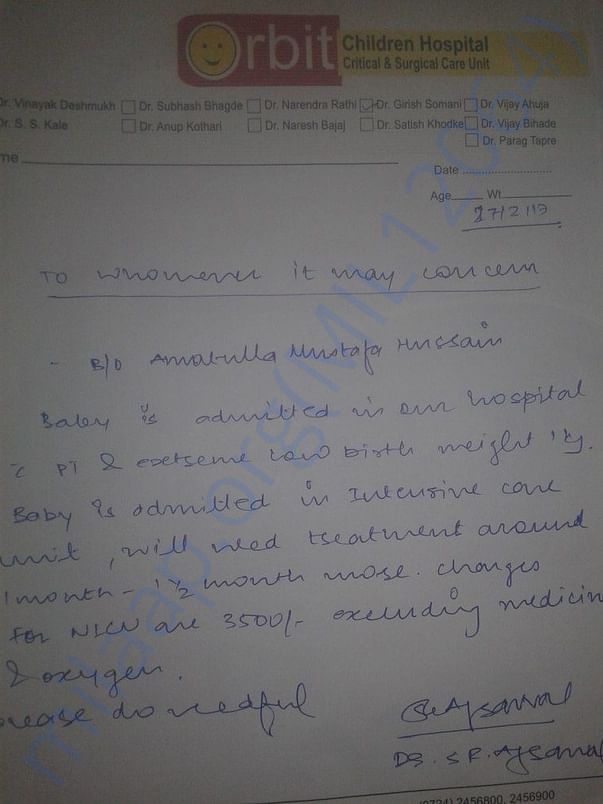 Orbit Children Hospital
Critical & Surgical Care Unit
Dr. Vinayak Deshmukh Dr. Subhash Bhagde Dr. Narendra Rathi Dr. Girish Somani Dr. Vijay Ahuja
Dr. S. S. Kale Dr. Anup Kothari Dr. Naresh Bajaj Dr. Satish Khodke Dr. Vijay Bihade
Dr. Parag Tapre
me
Date
Age Wt.
To whomever it may concern
- B/O Amatulla Mustafa Hussain
Baby is admitted in our hospital
c PT & extreme low birth weight
Baby is admitted in Intensive care
unit, will need treatment around
1month - 1½ month more. charges
for NICU are 3500/- excluding medicin
& oxygen.
please do needful
Dr. S R. Ajsawal
(0724) 2456800, 2456900
milaap.org(MIL12064)